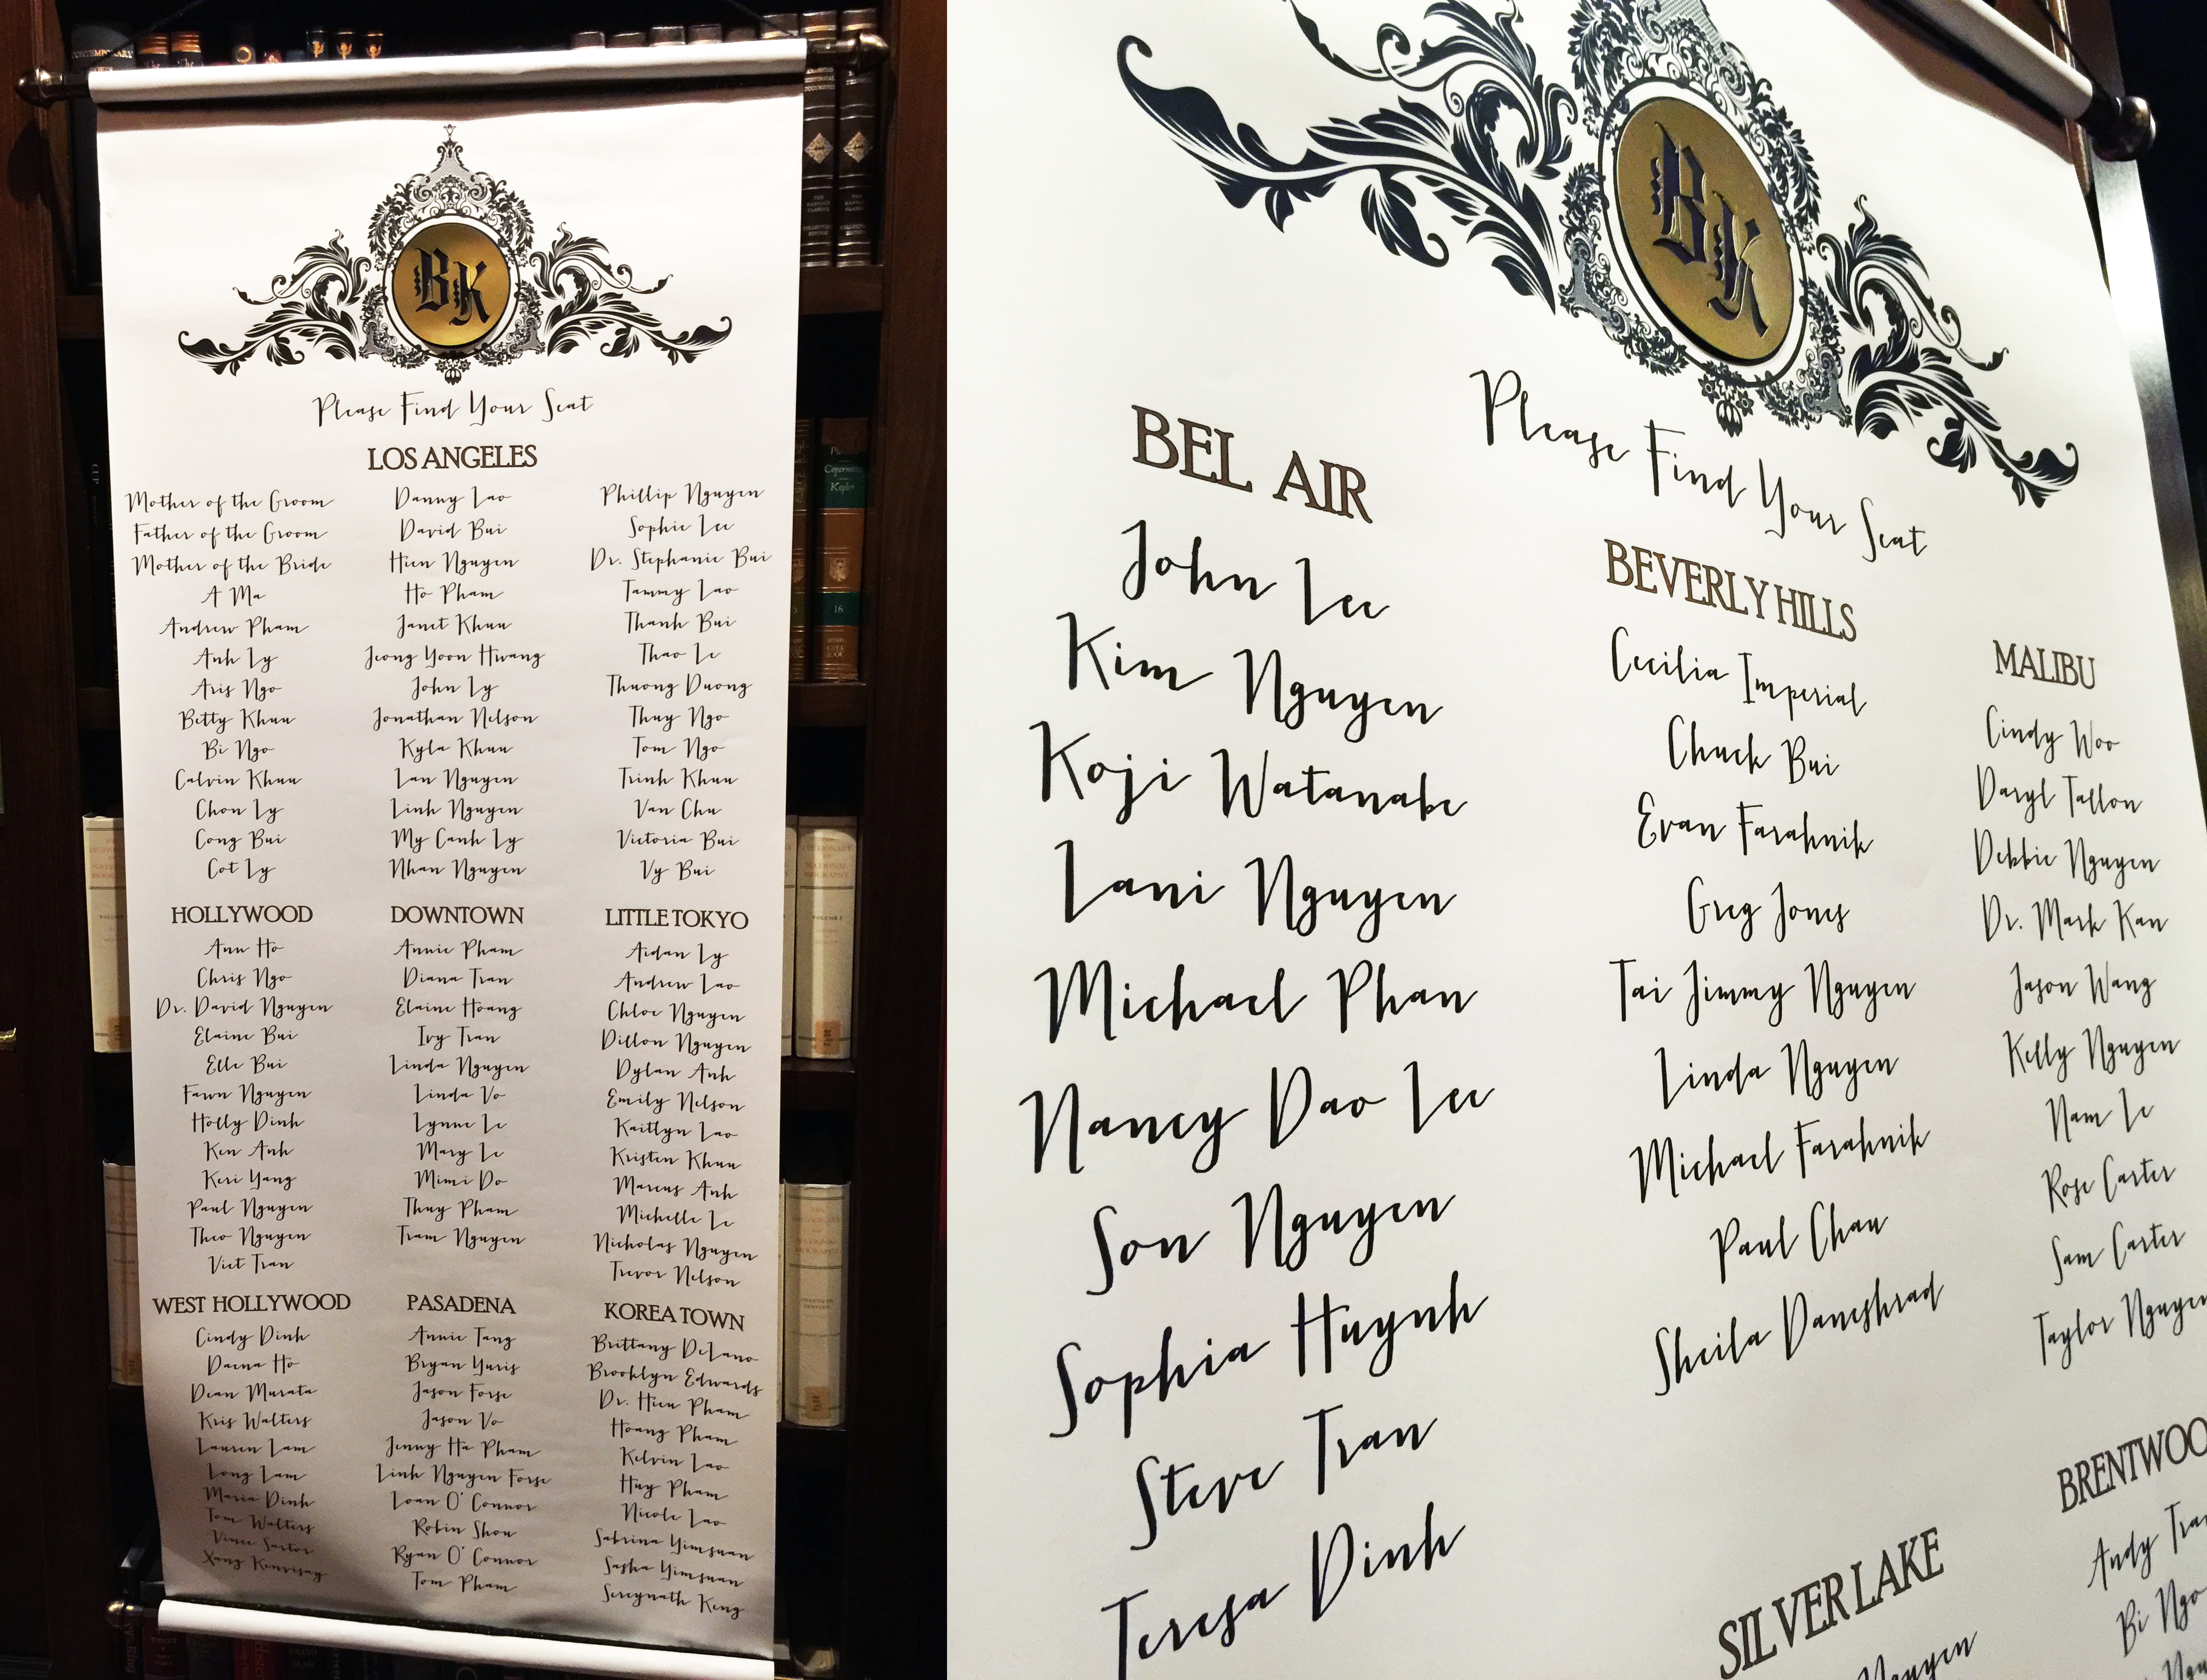 BK
Please Find Your Seat
LOS ANGELES
Mother of the Groom
Father of the Groom
Mother of the Bride
A Ma
Andrew Pham
Anh Ly
Aris Ngo
Betty Khuu
Bi Ngo
Calvin Khuu
Chon Ly
Cong Bui
Cot Ly
Danny Lao
David Bui
Hien Nguyen
Ho Pham
Janet Khuu
Jeong Yoon Hwang
John Ly
Jonathan Nelson
Kyla Khuu
Lan Nguyen
Linh Nguyen
My Canh Ly
Nhan Nguyen
Phillip Nguyen
Sophie Lee
Dr. Stephanie Bui
Tammy Lao
Thanh Bui
Thao Le
Thuong Duong
Thuy Ngo
Tom Ngo
Trinh Khuu
Van Chu
Victoria Bui
Vy Bui
HOLLYWOOD
Ann Ho
Chris Ngo
Dr. David Nguyen
Elaine Bui
Elle Bui
Fawn Nguyen
Holly Dinh
Ken Anh
Keri Yang
Paul Nguyen
Theo Nguyen
Viet Tran
DOWNTOWN
Annie Pham
Diana Tran
Elaine Hoang
Ivy Tran
Linda Nguyen
Linda Vo
Lynne Le
Mary Le
Mimi Do
Thuy Pham
Tram Nguyen
LITTLE TOKYO
Aidan Ly
Andrew Lao
Chloe Nguyen
Dillon Nguyen
Dylan Anh
Emily Nelson
Kaitlyn Lao
Kristen Khuu
Marcus Anh
Michelle Le
Nicholas Nguyen
Trevor Nelson
WEST HOLLYWOOD
Cindy Dinh
Daena Ho
Dean Murata
Kris Walters
Lauren Lam
Long Lam
Maria Dinh
Tom Walters
Vince Sartor
Xang Kenvisay
PASADENA
Annie Tang
Bryan Yuris
Jason Forse
Jason Vo
Jenny Ha Pham
Linh Nguyen Forse
Loan O'Connor
Robin Shou
Ryan O'Connor
Tom Pham
KOREA TOWN
Brittany DeLano
Brooklyn Edwards
Dr. Hien Pham
Hoang Pham
Kelvin Lao
Huy Pham
Nicole Lao
Sabrina Yimsuan
Sasha Yimsuan
Sereynath Keng
CONTEMPORARY
16
BK
Please Find Your Seat
BEL AIR
John Lee
Kim Nguyen
Koji Watanabe
Lani Nguyen
Michael Phan
Nancy Dao Lee
Son Nguyen
Sophia Huynh
Steve Tran
Teresa Dinh
BEVERLY HILLS
Cecilia Imperial
Chuck Bui
Evan Farahnik
Greg Jones
Tai Jimmy Nguyen
Linda Nguyen
Michael Farahnik
Paul Chau
Sheila Daneshrad
MALIBU
Cindy Woo
Daryl Tallon
Debbie Nguyen
Dr. Mark Kan
Jason Wang
Kelly Nguyen
Nam Le
Rose Carter
Sam Carter
Taylor Nguyen
SILVER LAKE
BRENTWOO
Andy Tra
Bi Ngo